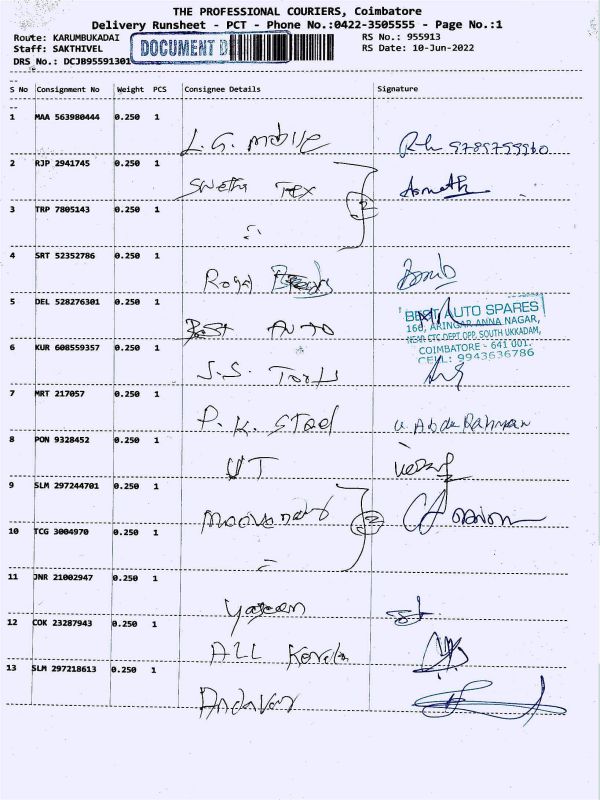 THE PROFESSIONAL COURIERS, Coimbatore
Delivery Runsheet - PCT - Phone No.:0422-3505555 - Page No.:1
Route: KARUMBUKADAI RS No.: 955913
Staff: SAKTHIVEL DOCUMENT D RS Date: 10-Jun-2022
DRS No.: DCJB95591301
S No Consignment No Weight PCS Consignee Details Signature
1 MAA 563980444 0.250 1
L.G. mobile
2 RJP 2941745 0.250 1
Swetha Tex
3 TRP 7805143 0.250 1
4 SRT 52352786 0.250 1
Royal
5 DEL 528276301 0.250 1
Best AUTO
BEST AUTO SPARES
166, ARINGAR ANNA NAGAR,
NEAR CTC DEPT. OPP. SOUTH UKKADAM,
COIMBATORE - 641 001.
CELL: 9943636786
6 KUR 608559357 0.250 1
J.S.
7 MRT 217057 0.250 1
P.K. Steel
8 PON 9328452 0.250 1
UT
9 SLM 297244701 0.250 1
10 TCG 3004970 0.250 1
11 JNR 21002947 0.250 1
Yaseen
12 COK 23287943 0.250 1
ALL Kerala
13 SLM 297218613 0.250 1
Andavar